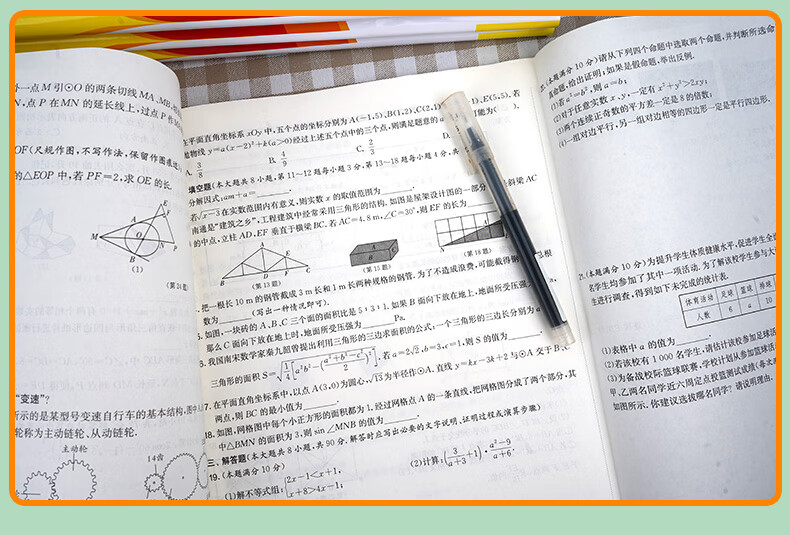 外一点 M 引⊙O 的两条切线 MA、MB,
N,点 P 在 MN 的延长线上,过点 P 作
OF(尺规作图,不写作法,保留作图痕迹)
的△EOP 中,若 PF=2,求 OE 的长.
M A E F O N P B
(1)
(第24
"变速"?
所示的是某型号变速自行车的基本结构,图中
轮称为主动链轮、从动链轮.
主动轮
14齿
在平面直角坐标系 xOy 中,五个点的坐标分别为 A(-1,5),B(1,2),C(2,1), E(5,5).若
抛物线 y=a(x-2)²+k(a>0)经过上述五个点中的三个点,则满足题意的 a 能为( ).
A. 3/8 B. 4/9 C. 2/3 D.
填空题(本大题共8小题,第11~12题每小题3分,第13~18题每小题4分,共
分解因式:am+a=
若√(x-3)在实数范围内有意义,则实数 x 的取值范围为
南通是"建筑之乡",工程建筑中经常采用三角形的结构.如图是屋架设计图的一部分 斜梁 AC
的中点,立柱 AD、EF 垂直于横梁 BC.若 AC=4.8 m,∠C=30°,则 EF 的长为
A E B D F C
(第13题)
A B
(第15题)
A M N
(第18题)
.把一根长 10 m 的钢管截成 3 m 长和 1 m 长两种规格的钢管.为了不造成浪费,可能截得钢 总根
数为 (写出一种情况即可).
5.如图,一块砖的 A、B、C 三个面的面积比是 5∶3∶1.如果 B 面向下放在地上,地面所受压强为
那么 C 面向下放在地上时,地面所受压强为 Pa.
6.我国南宋数学家秦九韶曾提出利用三角形的三边求面积的公式:一个三角形的三边长分别为 a
三角形的面积 S=√(1/4[a²b²-((a²+b²-c²)/2)²]).若 a=2√2,b=3,c=1,则 S 的值为
7.在平面直角坐标系中,以点 A(3,0)为圆心,√15为半径作⊙A.直线 y=kx-3k+2 与⊙A 交于 B、C
两点,则 BC 的最小值为
18.如图,网格图中每个小正方形的面积都为1.经过网格点 A 的一条直线,把网格图分成了两个部分,其
中△BMN 的面积为3,则 sin∠MNB 的值为
三、解答题(本大题共8小题,共90分.解答时应写出必要的文字说明、证明过程或演算步骤)
19.(本题满分10分)
(1)解不等式组:{2x-1<x+1, x+8>4x-1;
(2)计算:(3/(a+3)+1)·(a²-9)/(a+6).
(本题满分10分)请从下列四个命题中选取两个命题,并判断所选命
真命题,给出证明;如果是假命题,举出反例.
(1)若 a²=b²,则 a=b;
(2)对于任意实数 x、y,一定有 x²+y²>2xy;
(3)两个连续正奇数的平方差一定是8的倍数;
(4)一组对边平行,另一组对边相等的四边形一定是平行四边形.
2.(本题满分10分)为提升学生体质健康水平,促进学生全
名学生均参加了其中一项活动.为了解该校学生参与大
生进行调查,得到如下未完成的统计表.
体育活动 足球 篮球 排球
人数 6 a 10
(1)表格中 a 的值为
(2)若该校有1 000名学生,请估计该校参加足球活
(3)为备战校际篮球联赛,学校计划从参加篮球活
甲、乙两名同学近六周定点投篮测试成绩(每次
如图所示.你建议选拔哪名同学?请说明理由.